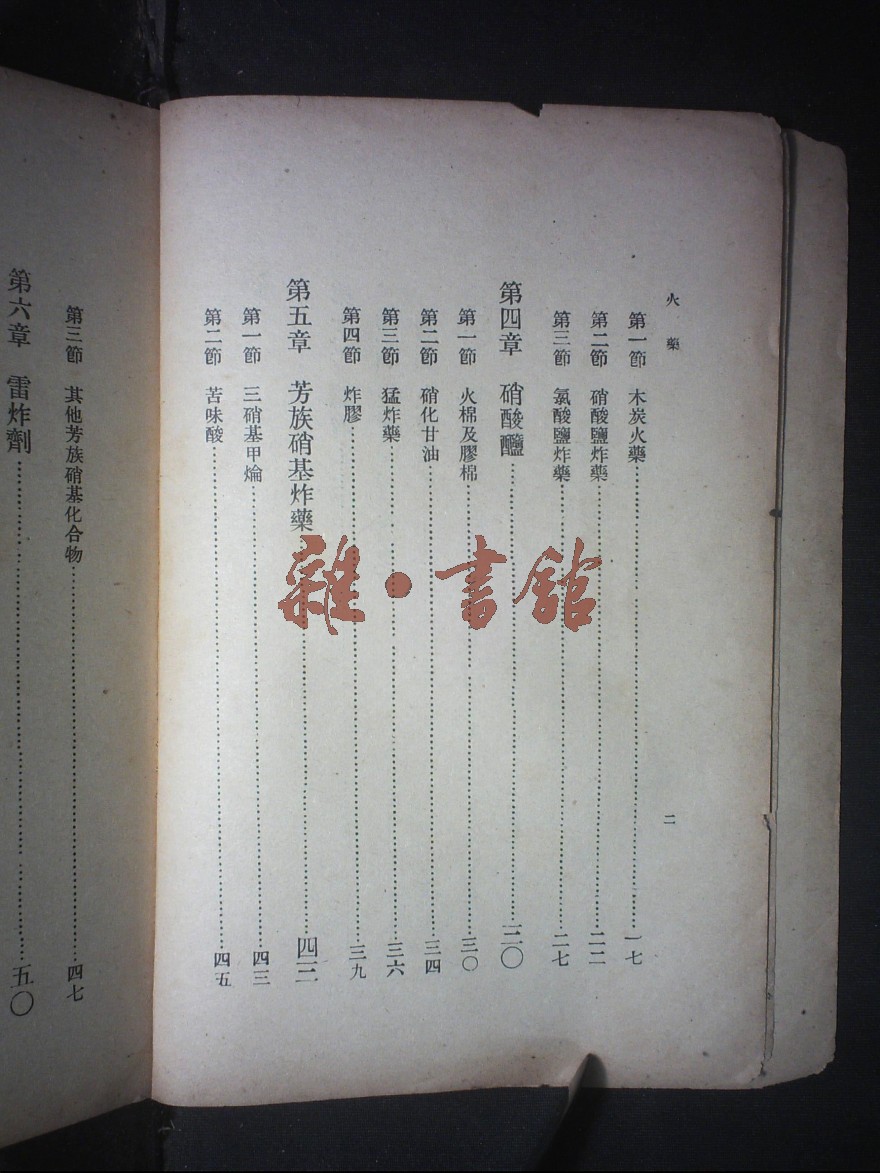 火藥
二
第一節 木炭火藥 一七
第二節 硝酸鹽炸藥 二二
第三節 氯酸鹽炸藥 二七
第四章 硝酸䤄 三〇
第一節 火棉及膠棉 三〇
第二節 硝化甘油 三四
第三節 猛炸藥 三六
第四節 炸膠 三九
第五章 芳族硝基炸藥 四二
第一節 三硝基甲爚 四三
第二節 苦味酸 四五
第三節 其他芳族硝基化合物 四七
第六章 雷炸劑 五〇
雜·書館